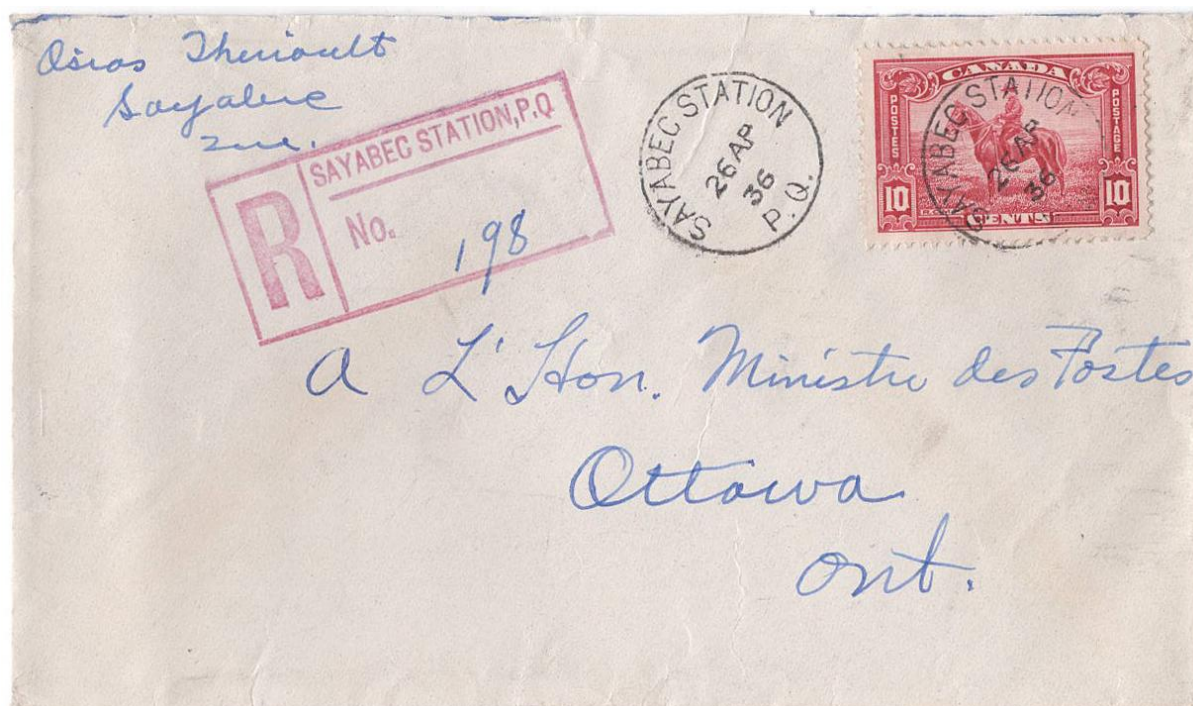 Osias Theriault
Sayabec
Que.
SAYABEC STATION, P.Q
R
No. 198
SAYABEC STATION
26 AP
36
P.Q.
CANADA
POSTES
POSTAGE
SAYABEC STATION
26 AP
36
10
10
CENTS
A L'Hon. Ministre des Postes
Ottawa
Ont.